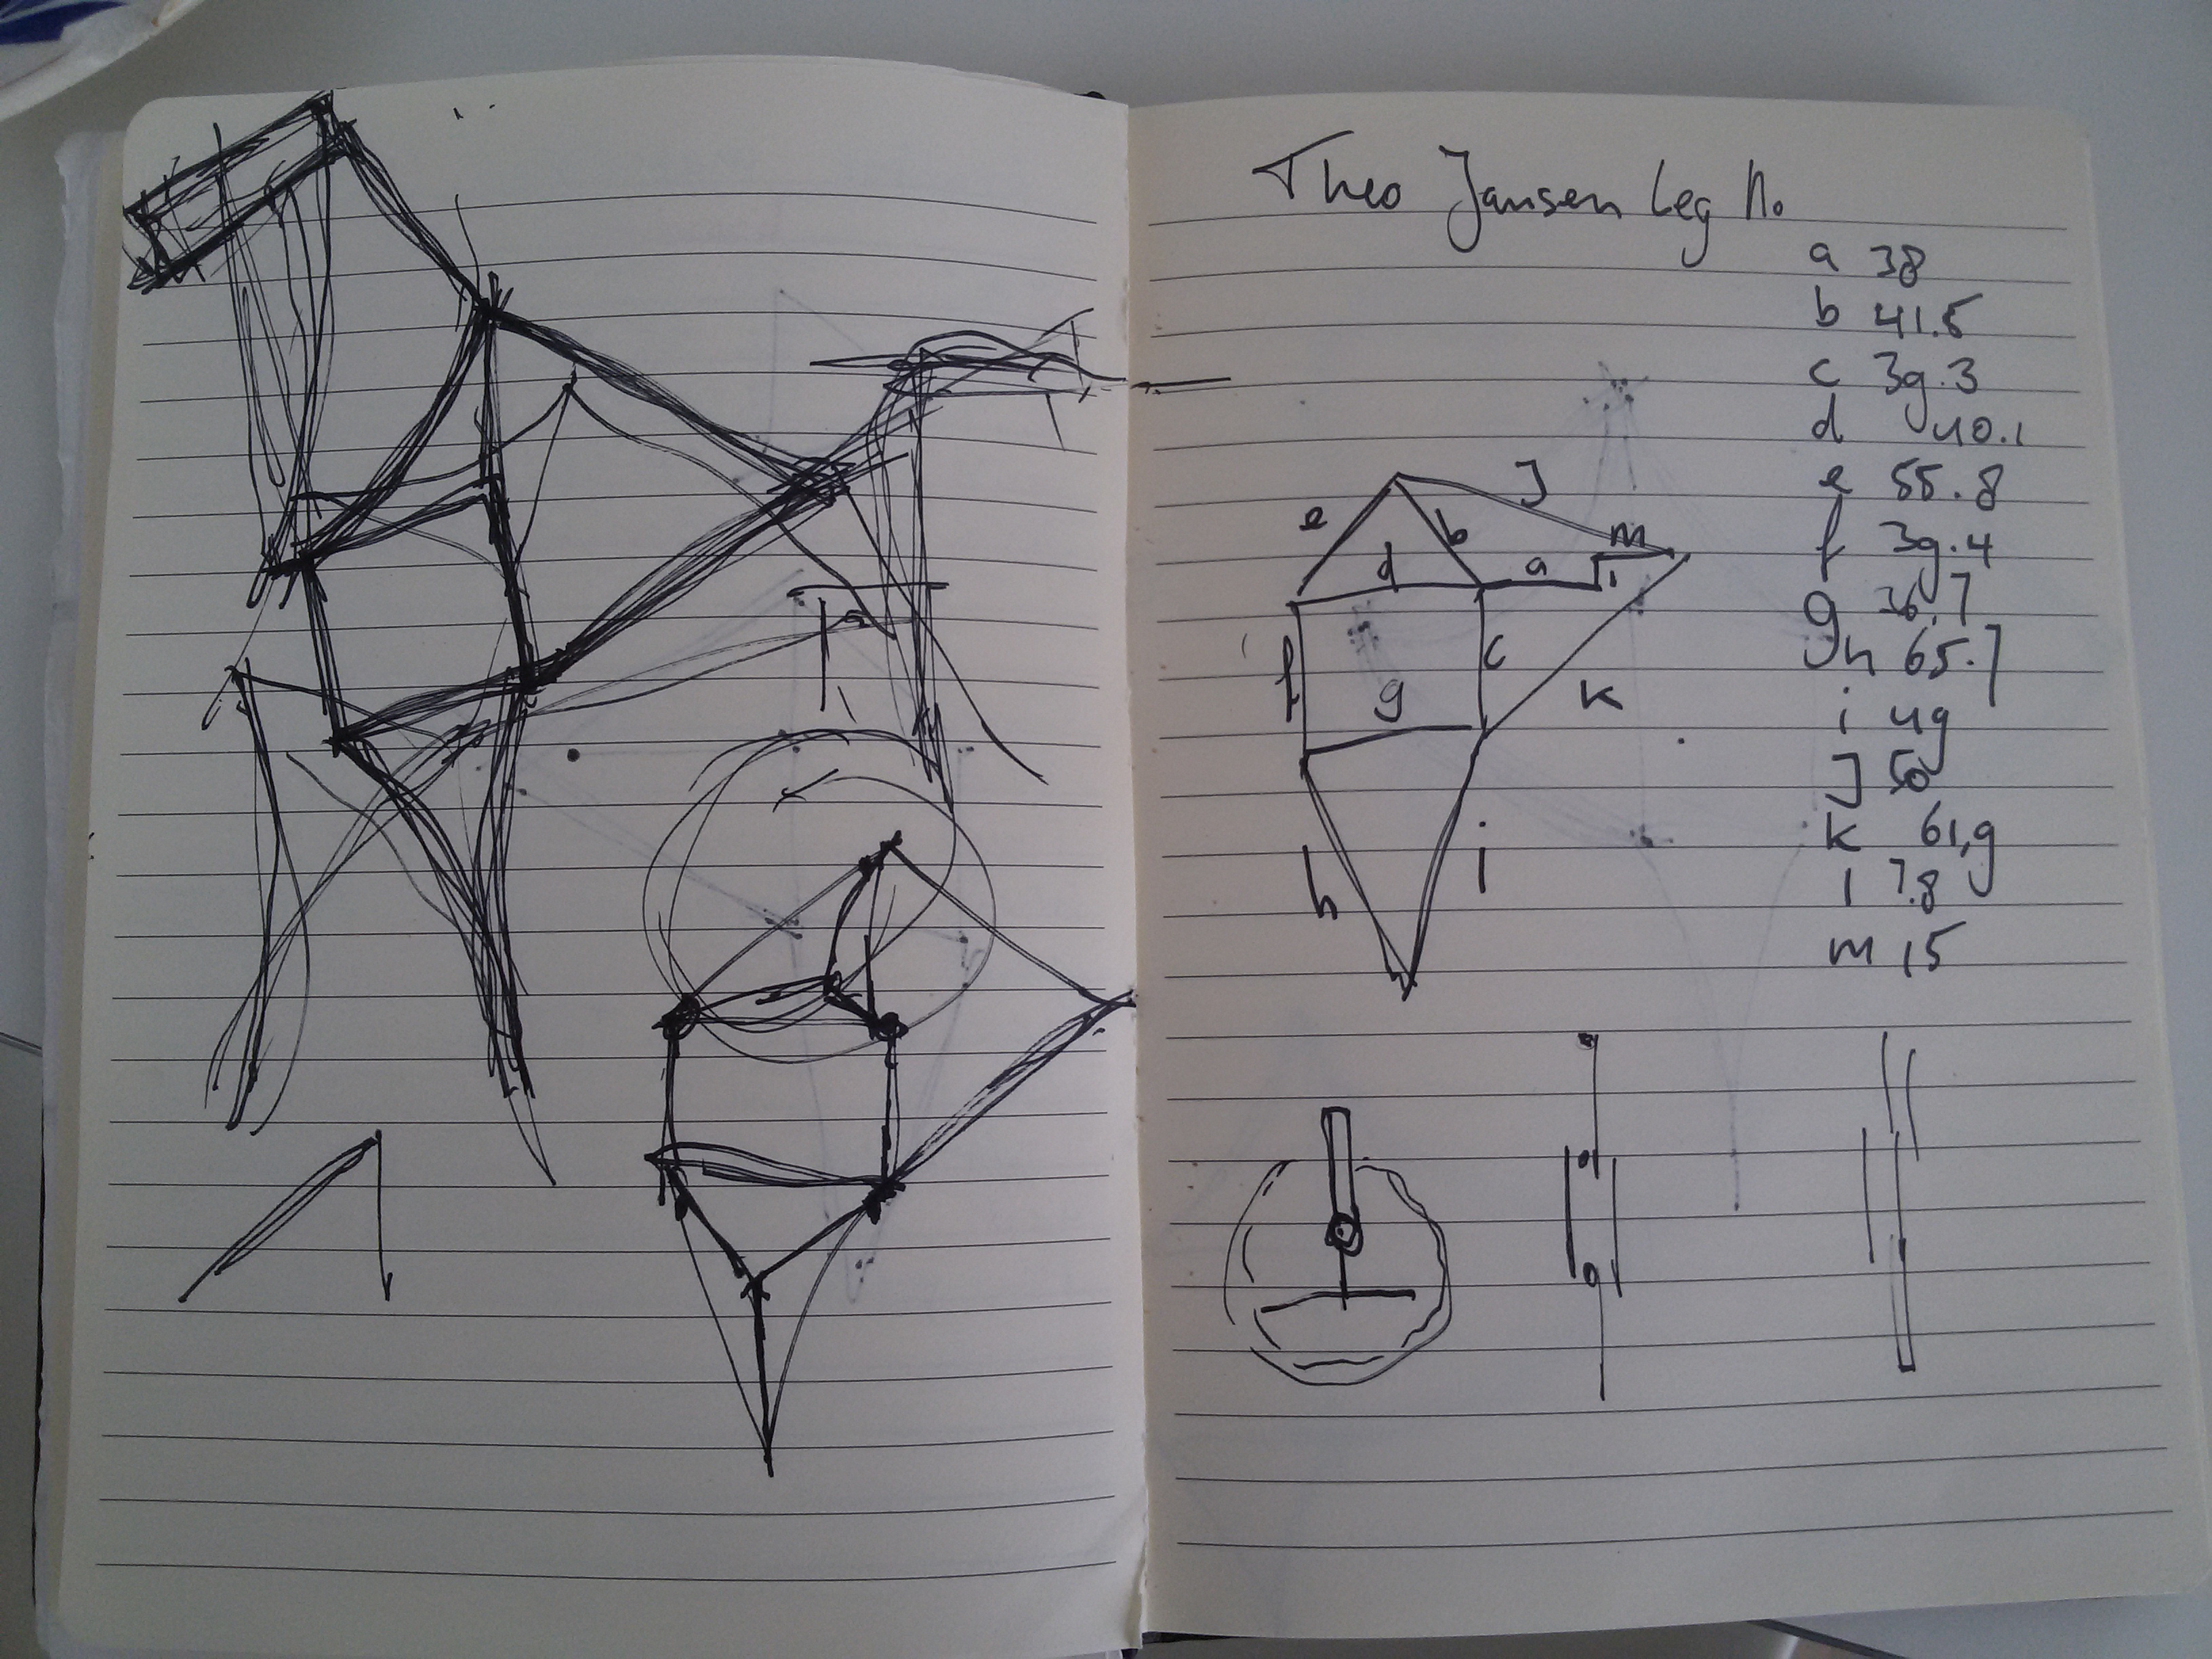 Theo Jansen Leg No
a 38
b 41.5
c 39.3
d 40.1
e 55.8
f 39.4
g 36.7
h 65.7
i 49
J 50
k 61,9
l 7.8
m 15
J
e
b
m
d
a
l
f
c
g
k
h
i